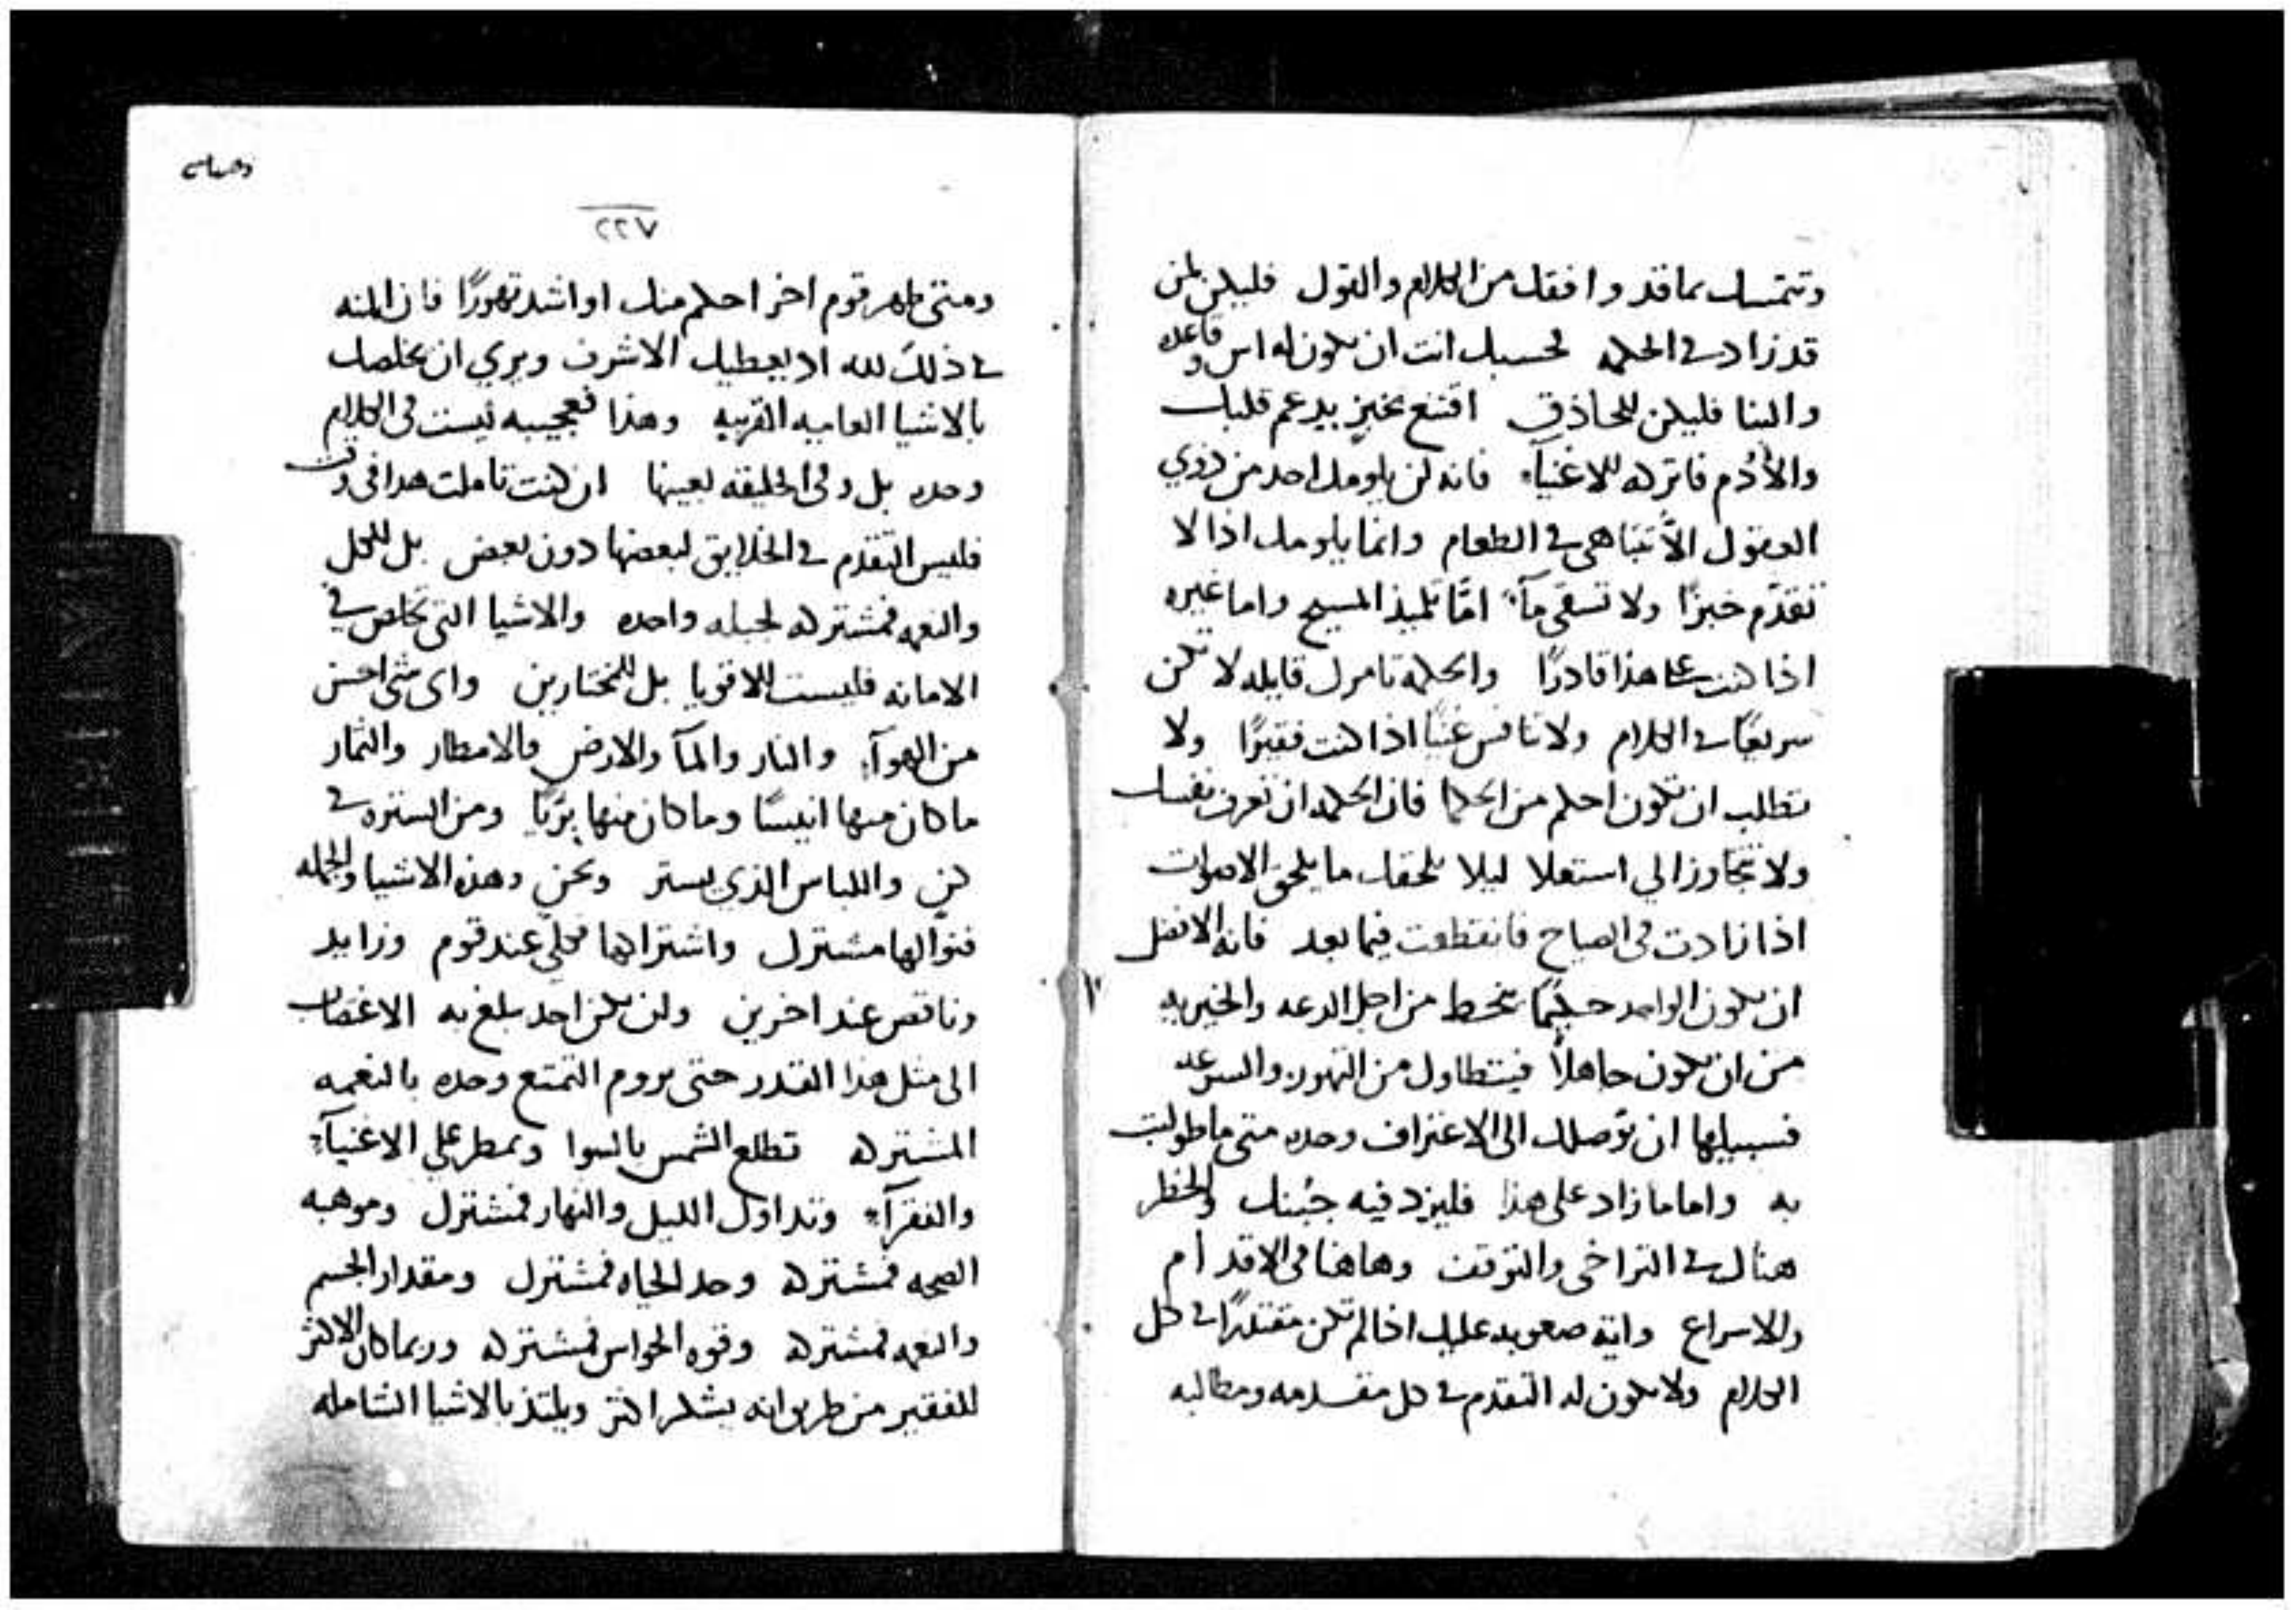 وتتمسك بما قد وافقك من الكلام والقول فليكن لمن
قد زاد في الحكمه فحسبك انت ان يكون له اس وقاعده
والبنا فليكن للحاذق اقتنع بخبز يدعم قلبك
والأدُم فاتركه للاغنيآء فانه لن يلومك احد من ذوي
العقول الاّ تتباهى في الطعام وانما يلومك اذا لا
تقدّم خبزًا ولا تسقي مآء امّا تلميذ المسيح واما غيره
اذا كنت على هذا قادرًا والحكمة تامرك قايله لا تكن
سريعًا في الكلام ولا تنافس غنيًا اذا كنت فقيرًا ولا
تطلب ان تكون احكم من الحكما فان الحكمه ان تعرف نفسك
ولا تتجاوز الي استعلا ليلا يلحقك ما يلحق الاصوات
اذا زادت في الصياح فانقطعت فيما بعد فانه الافضل
ان يكون الواحد حكيمًا ينحط من اجل الدعه والخيريه
من ان يكون جاهلاً فيتطاول من التهور والسرعه
فسبيلها ان توصلك الى الاعتراف وحده متى ما طولبت
به واما ما زاد على هذا فليزد فيه جُبنك والخطر
هناك في التراخي والتوقف وهاهنا في الاقدام
والاسراع واية صعوبه عليك اذا لم تكن مقتدرًا في كل
الكلام ولا يكون لك التقدم في كل مقدمه ومطالبه
٢٢٧
ومتى ظهر قوم اخر احكم منك او اشد تهورًا فان المنه
في ذلك لله اذ يعطيك الاشرف ويري ان يخلصك
بالاشيا العاميه القريبه وهذا فعجيبه ليست في الكلام
وحده بل وفي الخليقه بعينها ان كنت تاملت هذا في وقت
فليس التقدم في الخلايق لبعضها دون بعض بل للكل
والنعمه فمشتركه لجبله واحده والاشيا التي تخلص في
الامانه فليست للاقويا بل للمختارين واى شى احسن
من الهوآء والنار والمآ والارض والامطار والثمار
ما كان منها انيسًا وما كان منها برّيًا ومن السترة في
كنٍ واللباس الذي يستر ونحن وهذه الاشيا والجمله
فنوالها مشترك واشتراكها كلي عند قوم وزايد
وناقص عند اخرين ولن يكن احد يبلغ به الاغتصاب
الى مثل هذا القدر حتى يروم التمتع وحده بالنعمه
المشتركه تطلع الشمس بالسوا وتمطر على الاغنيآء
والفقرآء وتداول الليل والنهار فمشترك وموهبه
الصحه فمشتركه وحد الحياه فمشترك ومقدار الجسم
والنعمه فمشتركه وقوه الحواس فمشتركه وربما كان الاكثر
للفقير من طريق انه يشكر اكثر ويلتذ بالاشيا الشامله